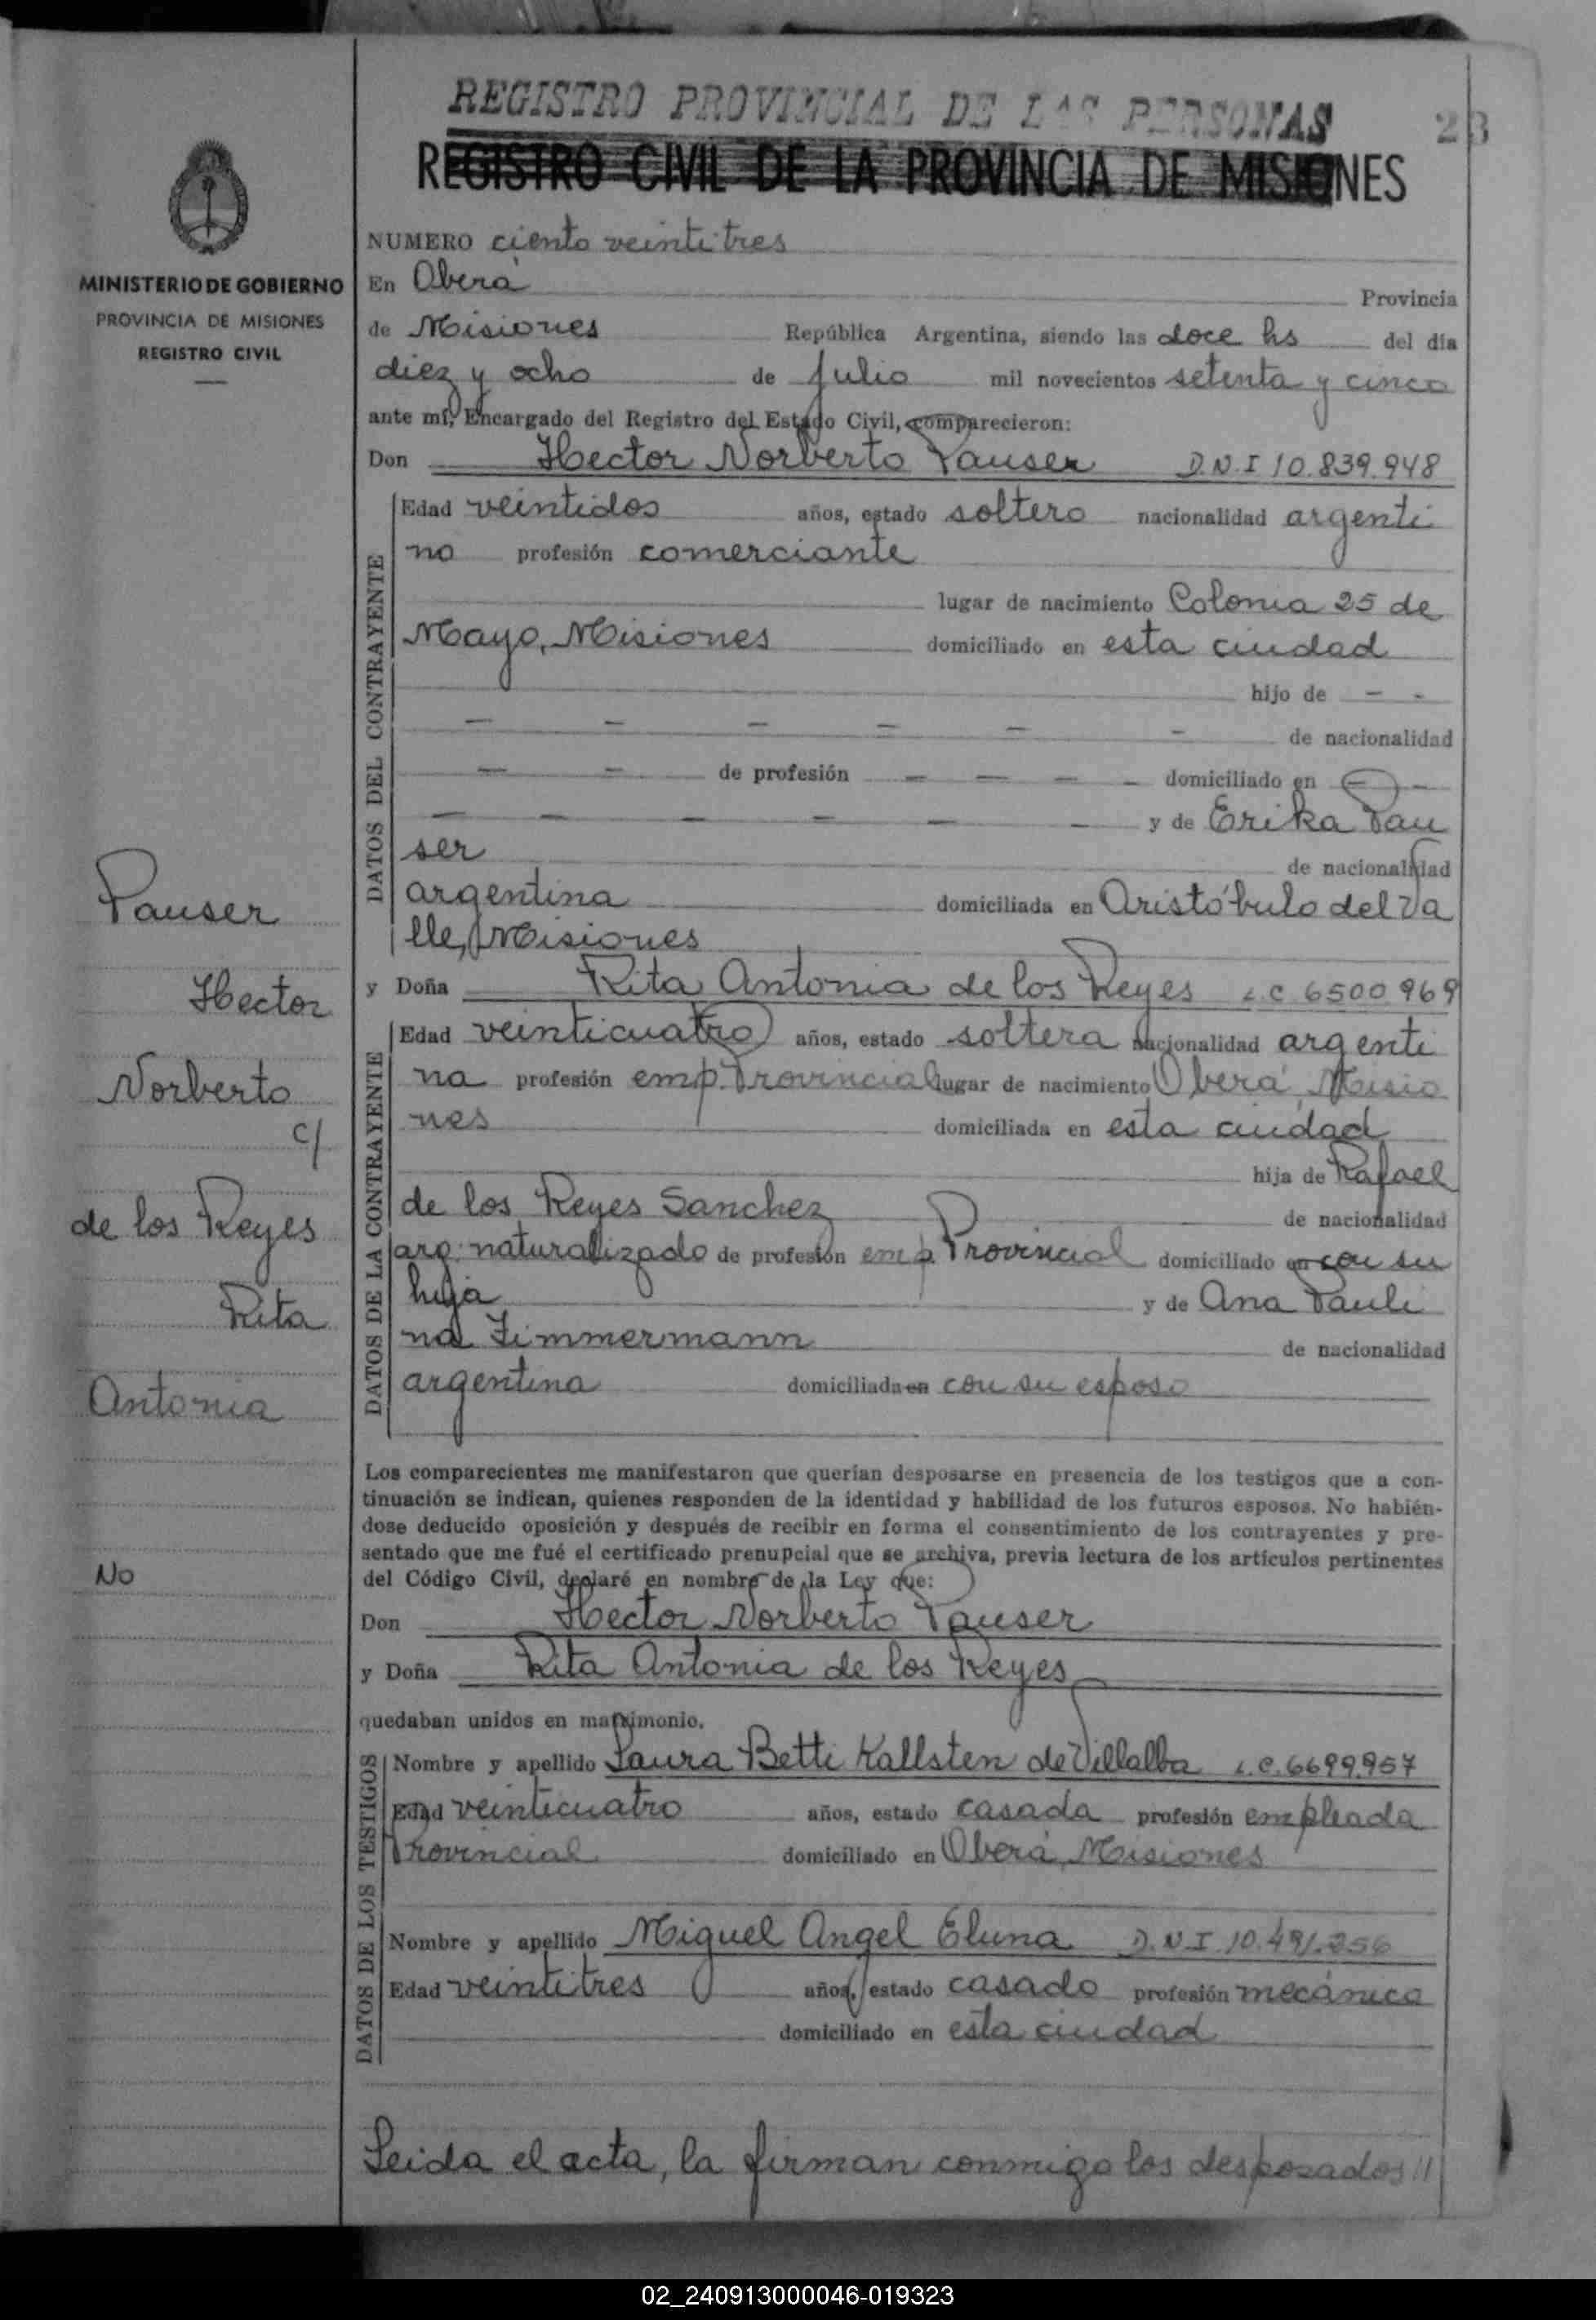 REGISTRO PROVINCIAL DE LAS PERSONAS
23
REGISTRO CIVIL DE LA PROVINCIA DE MISIONES
MINISTERIO DE GOBIERNO
PROVINCIA DE MISIONES
REGISTRO CIVIL
NUMERO ciento veintitres
En Oberá Provincia
de Misiones República Argentina, siendo las doce hs del día
diez y ocho de julio mil novecientos setenta y cinco
ante mí, Encargado del Registro del Estado Civil, comparecieron:
Don Hector Norberto Pauser D.N.I 10.839.948
DATOS DEL CONTRAYENTE
Edad veintidos años, estado soltero nacionalidad argenti
no profesión comerciante
lugar de nacimiento Colonia 25 de
Mayo, Misiones domiciliado en esta ciudad
hijo de - -
- - - - - - de nacionalidad
- - de profesión - - - - domiciliado en - -
- - - - - - y de Erika Pau
ser de nacionalidad
argentina domiciliada en Aristóbulo del Va
lle, Misiones
y Doña Rita Antonia de los Reyes L.C 6500969
DATOS DE LA CONTRAYENTE
Edad veinticuatro años, estado soltera nacionalidad argenti
na profesión emp. Provincial lugar de nacimiento Oberá, Misio
nes domiciliada en esta ciudad
hija de Rafael
de los Reyes Sanchez de nacionalidad
arg. naturalizado de profesión emp. Provincial domiciliado en con su
hija y de Ana Pauli
na Zimmermann de nacionalidad
argentina domiciliada en con su esposo
Los comparecientes me manifestaron que querían desposarse en presencia de los testigos que a con-
tinuación se indican, quienes responden de la identidad y habilidad de los futuros esposos. No habién-
dose deducido oposición y después de recibir en forma el consentimiento de los contrayentes y pre-
sentado que me fué el certificado prenupcial que se archiva, previa lectura de los artículos pertinentes
del Código Civil, declaré en nombre de la Ley que:
Don Hector Norberto Pauser
y Doña Rita Antonia de los Reyes
quedaban unidos en matrimonio.
DATOS DE LOS TESTIGOS
Nombre y apellido Laura Betti Kallsten de Villalba L.C. 6699.957
Edad veinticuatro años, estado casada profesión empleada
Provincial domiciliado en Oberá, Misiones
Nombre y apellido Miguel Angel Eluna D.N.I 10.491.256
Edad veintitres años, estado casado profesión mecánico
domiciliado en esta ciudad
Leida el acta, la firman conmigo los desposados //
Pauser
Hector
Norberto
c/
de los Reyes
Rita
Antonia
No
02_240913000046-019323